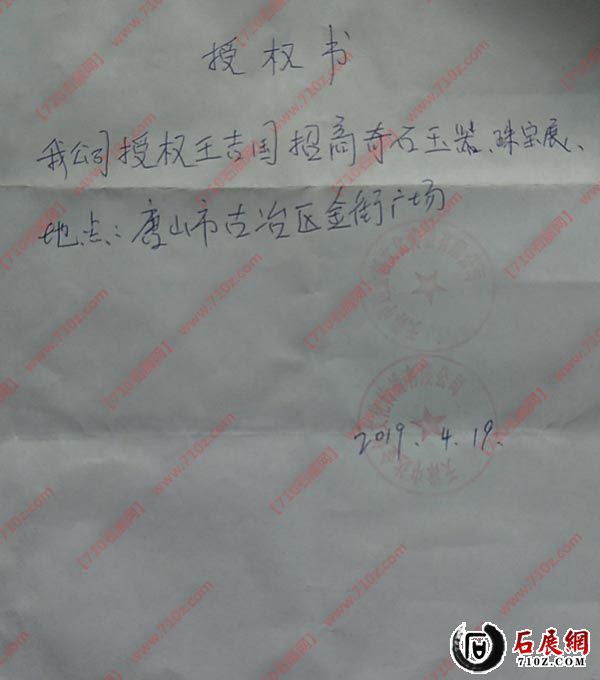 授权书
我公司授权王吉国招商奇石玉器、珠宝展、
地点：唐山市古冶区金街广场
2019.4.19.
【710石展网】www.710z.com
石展網
710Z.COM